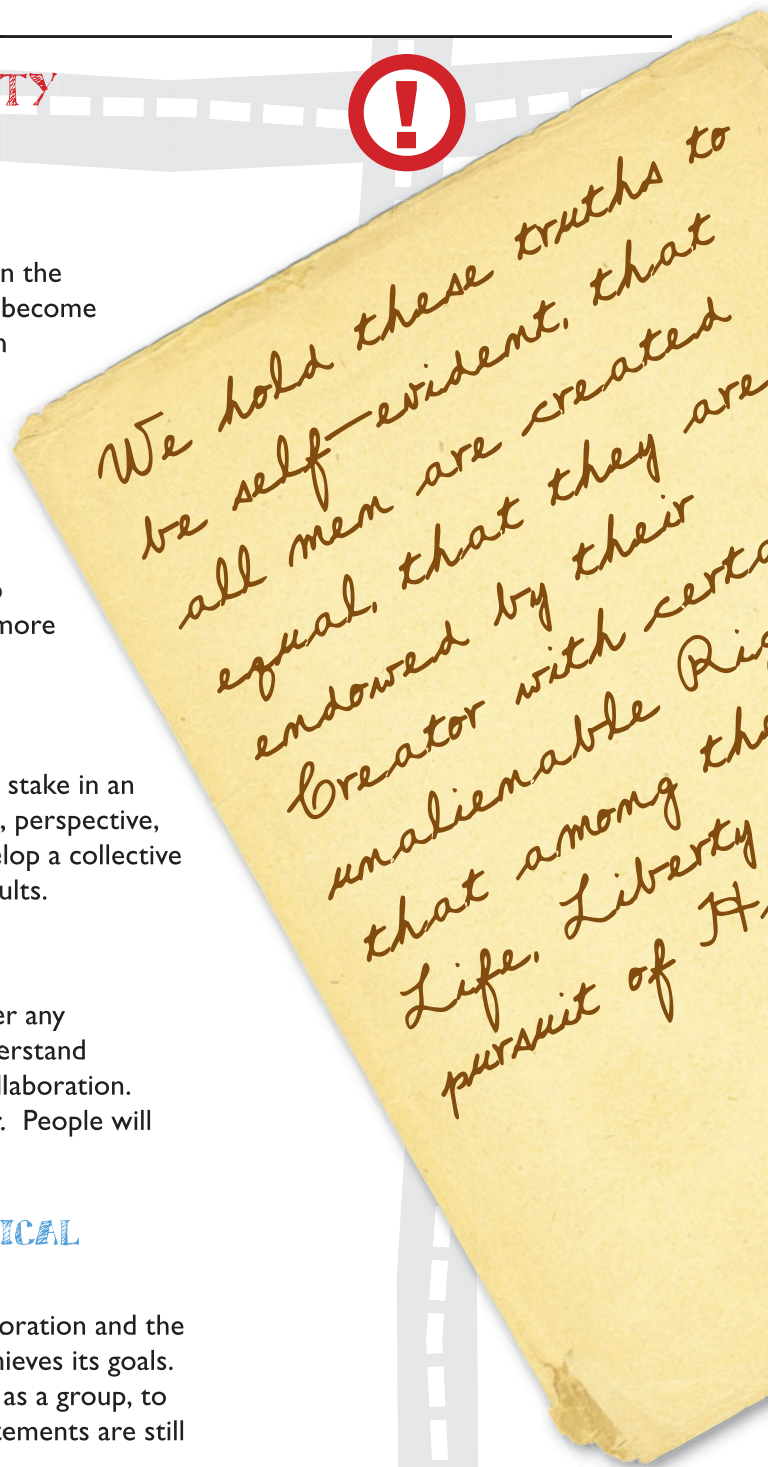 TY
!
n the
become
n
more
stake in an
, perspective,
elop a collective
ults.
er any
erstand
llaboration.
r. People will
ICAL
oration and the
hieves its goals.
as a group, to
tements are still
We hold these truths to
be self-evident, that
all men are created
equal, that they are
endowed by their
Creator with certa
unalienable Rig
that among the
Life, Liberty
pursuit of H